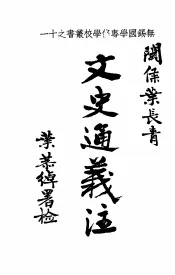 無錫國學專修學校叢書之十一
閩侯葉長青
文史通義注
葉恭綽署檢